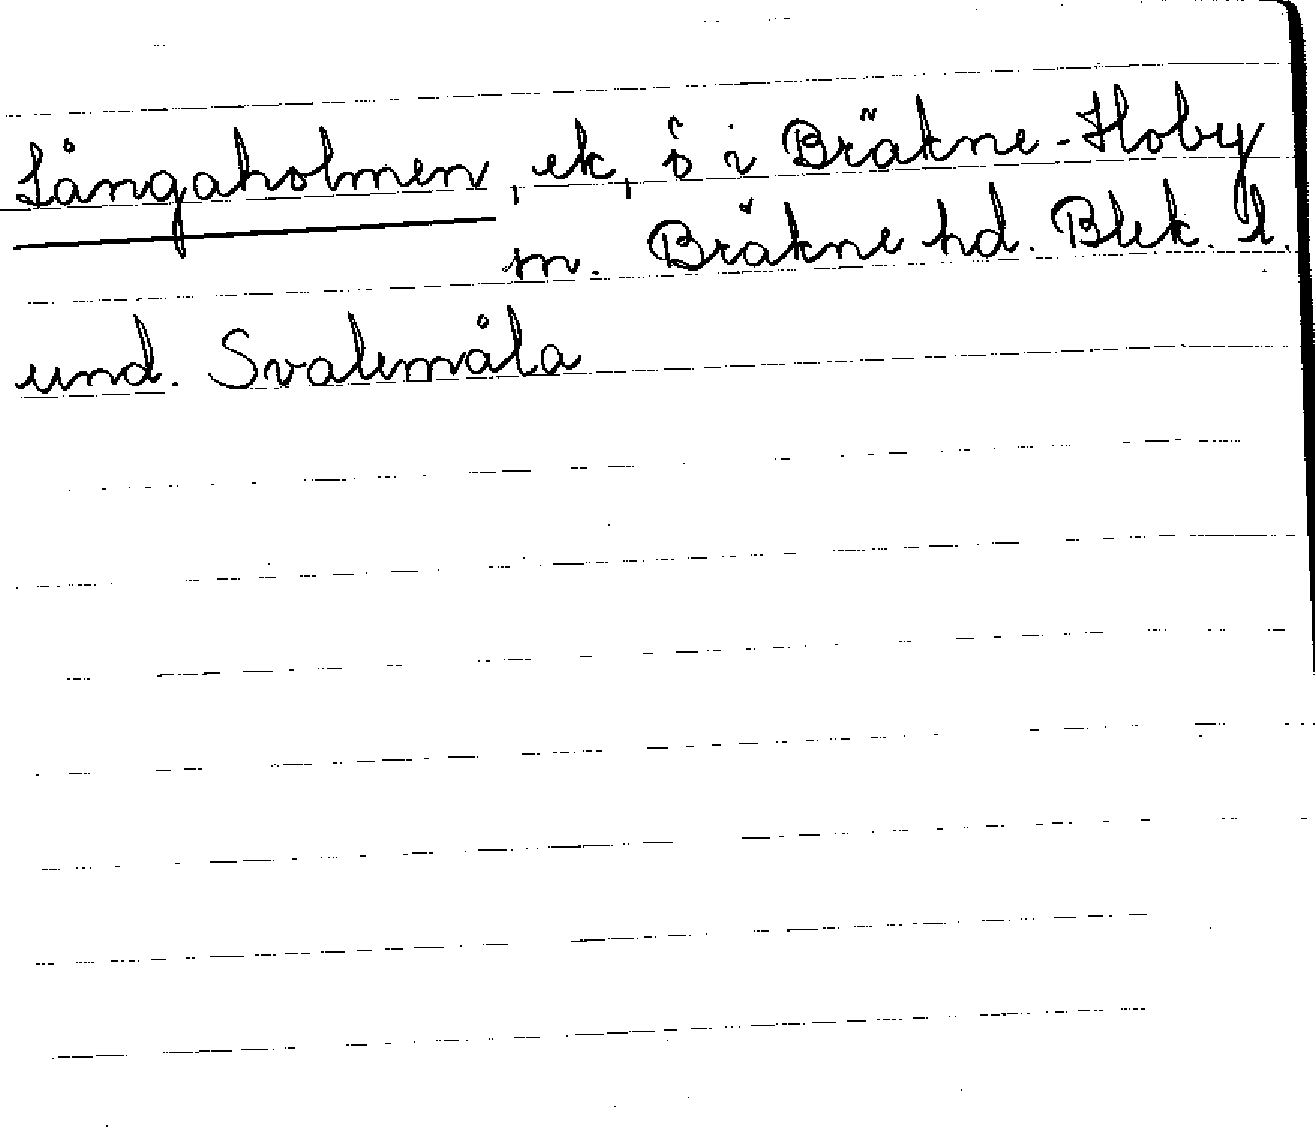 Långaholmen, ek, ö i Bräkne-Hoby
m. Bräkne hd. Blek. l.
und. Svalemåla